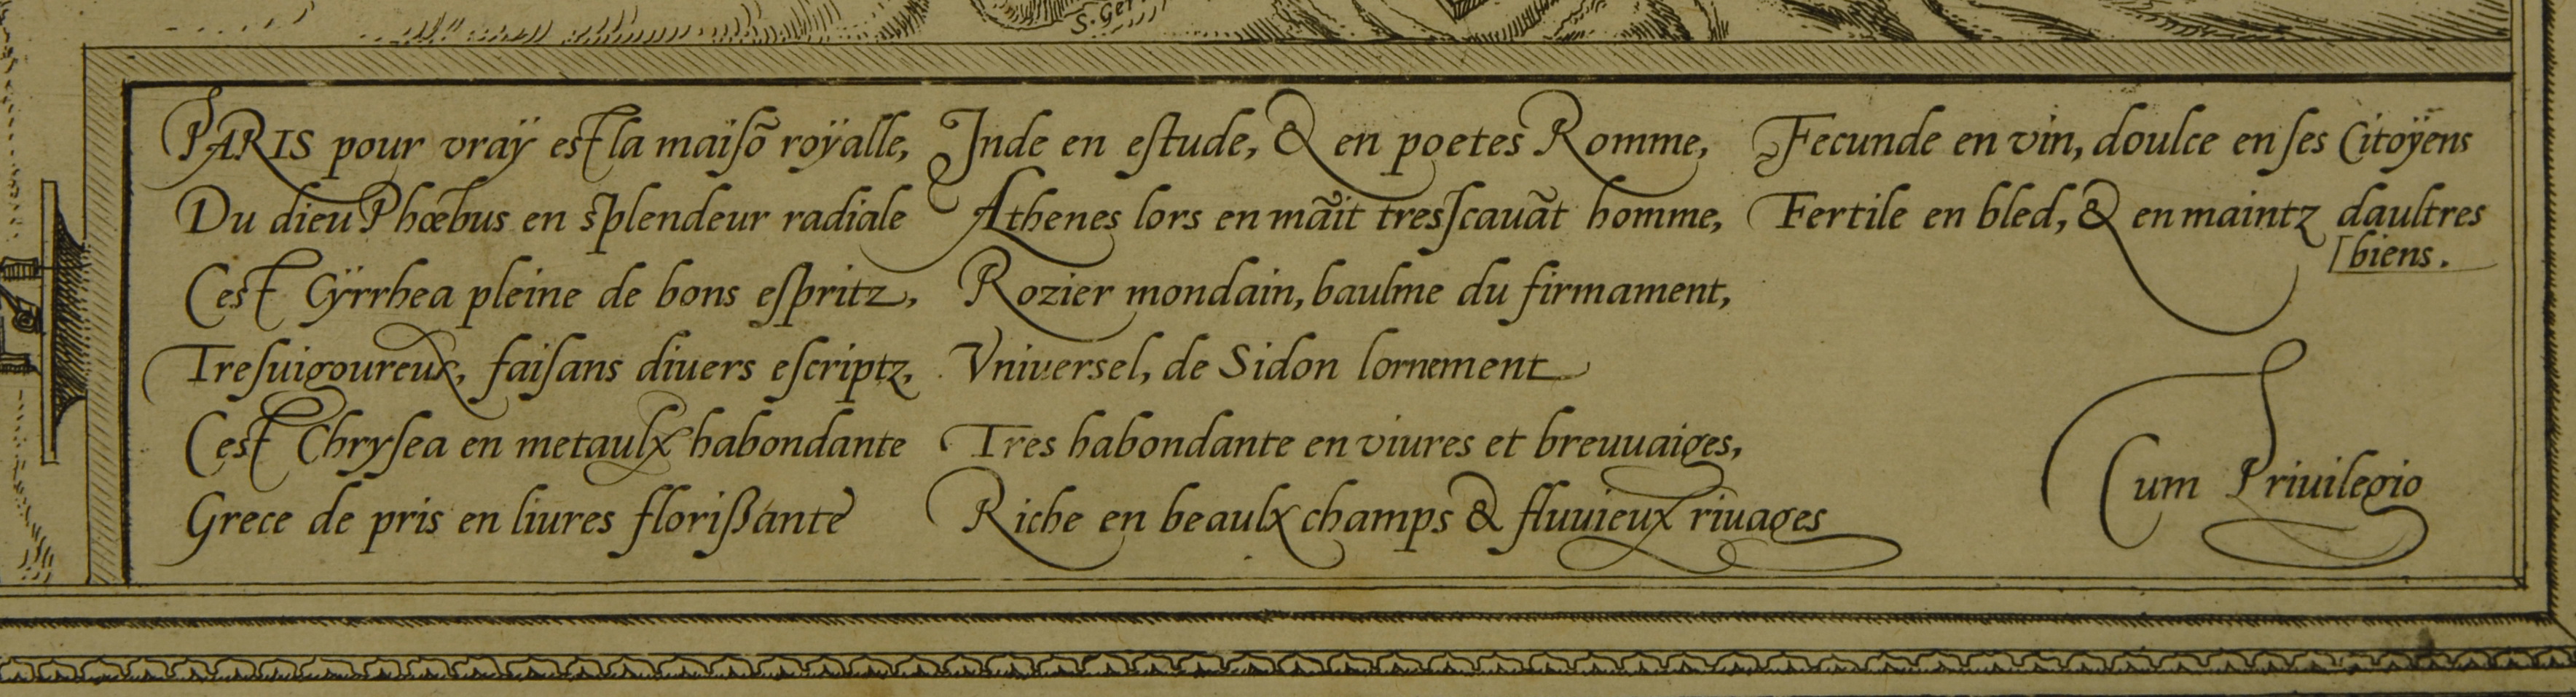 S. Ger
PARIS pour vraÿ est la maiſõ roÿalle,
Du dieu Phœbus en splendeur radiale
Cest Cÿrrhea pleine de bons eſpritz,
Treſuigoureux, faiſans diuers eſcriptz,
Cest Chryſea en metaulx habondante
Grece de pris en liures florißante
Inde en eſtude, & en poetes Romme,
Athenes lors en mãit tresſcauãt homme,
Rozier mondain, baulme du firmament,
Vniversel, de Sidon lornement
Tres habondante en viures et breuuaiges,
Riche en beaulx champs & fluuieux riuages
Fecunde en vin, doulce en ſes Citoÿens
Fertile en bled, & en maintz daultres
[biens.
Cum Priuilegio